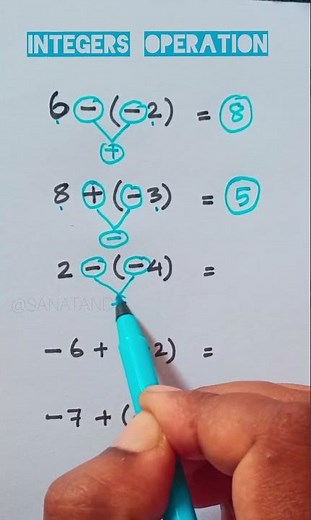 INTEGERS OPERATION
6 - (-2) = 8
+
8 + (-3) = 5
-
2 - (-4) =
@SANATAN
-6 + 2) =
-7 + (